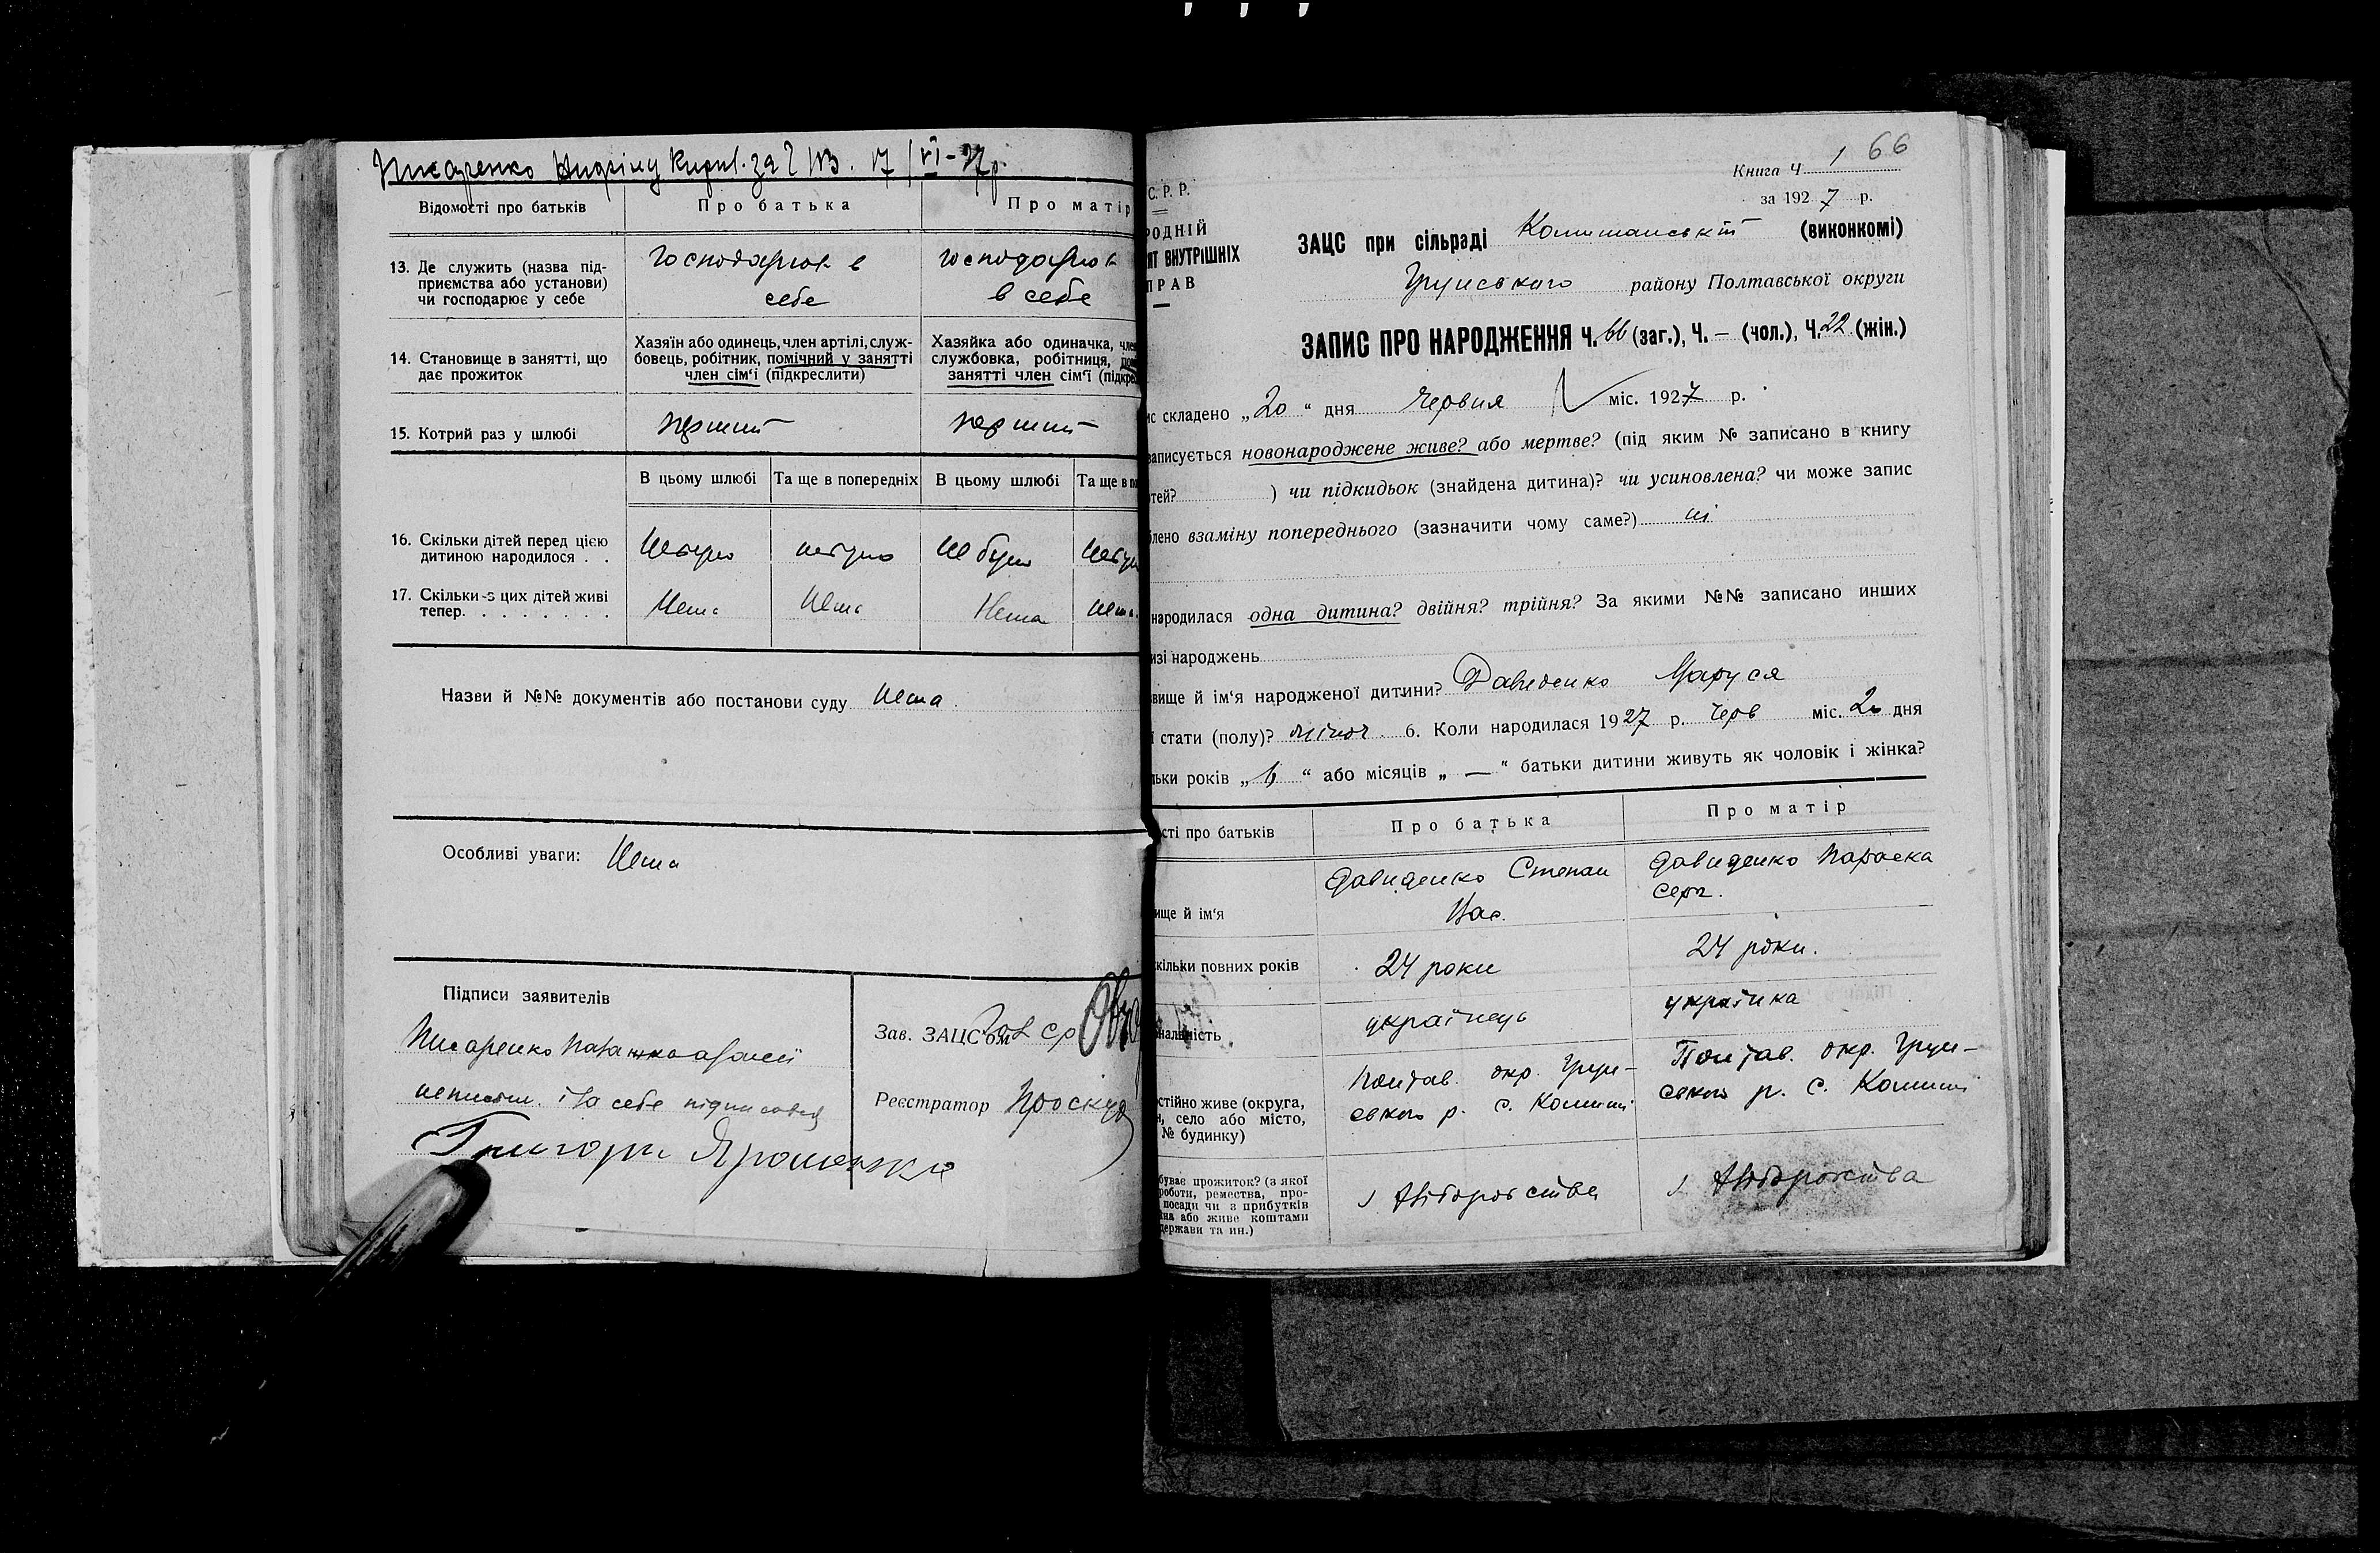 Писаренко Андрію Кирил. за 17/VI-27р.
Відомості про батьків
Про батька
Про матір
13. Де служить (назва під-
приємства або установи)
чи господарює у себе
Господарює в
себе
господарює
в себе
14. Становище в занятті, що
дає прожиток
Хазяїн або одинець, член артілі, служ-
бовець, робітник, помічний у занятті
член сім'ї (підкреслити)
Хазяйка або одиначка, член
службовка, робітниця, по
занятті член сім'ї (підкре
15. Котрий раз у шлюбі
перший
перший
В цьому шлюбі
Та ще в попередніх
В цьому шлюбі
Та ще в по
16. Скільки дітей перед цією
дитиною народилося . .
Небуло
небуло
не було
небул
17. Скільки з цих дітей живі
тепер. . . . . . . .
Нема
Нема
Нема
нема
Назви й №№ документів або постанови суду Нема
Особливі уваги: Нема
Підписи заявителів
Писаренко
неписьм. і за себе підписался
Григорій Ярошенко
Зав. ЗАЦС'ом
Реєстратор
Книга Ч. 1 66
за 1927 р.
С. Р. Р.
РОДНІЙ
ЯТ ВНУТРІШНІХ
ПРАВ
ЗАЦС при сільраді Комишанській (виконкомі)
Грунського району Полтавської округи
ЗАПИС ПРО НАРОДЖЕННЯ Ч. 66 (заг.), Ч. — (чол.), Ч. 22 (жін.)
ис складено „20" дня Червня міс. 1927 р.
записується новонароджене живе? або мертве? (під яким № записано в книгу
ртей? ) чи підкидьок (знайдена дитина)? чи усиновлена? чи може запис
блено взаміну попереднього (зазначити чому саме?) ні
народилася одна дитина? двійня? трійня? За якими №№ записано инших
изі народжень
вище й ім'я народженої дитини? Давиденко Маруся
ї стати (полу)? жіноч. 6. Коли народилася 1927 р. Черв міс. 20 дня
льки років „6" або місяців „—" батьки дитини живуть як чоловік і жінка?
сті про батьків
Про батька
Про матір
ище й ім'я
Давиденко Степан
Вас.
Давиденко Параска
Серг.
кільки повних років
24 роки
24 роки.
нальність
українець
українка
стійно живе (округа,
н, село або місто,
№ будинку)
Полтав. окр. Грун-
ського р. с. Комиші
Полтав. окр. Грун-
ського р. с. Комиші
буває прожиток? (з якої
роботи, ремества, про-
посади чи з прибутків
їна або живе коштами
держави та ин.)
з хліборобства
з хліборобства